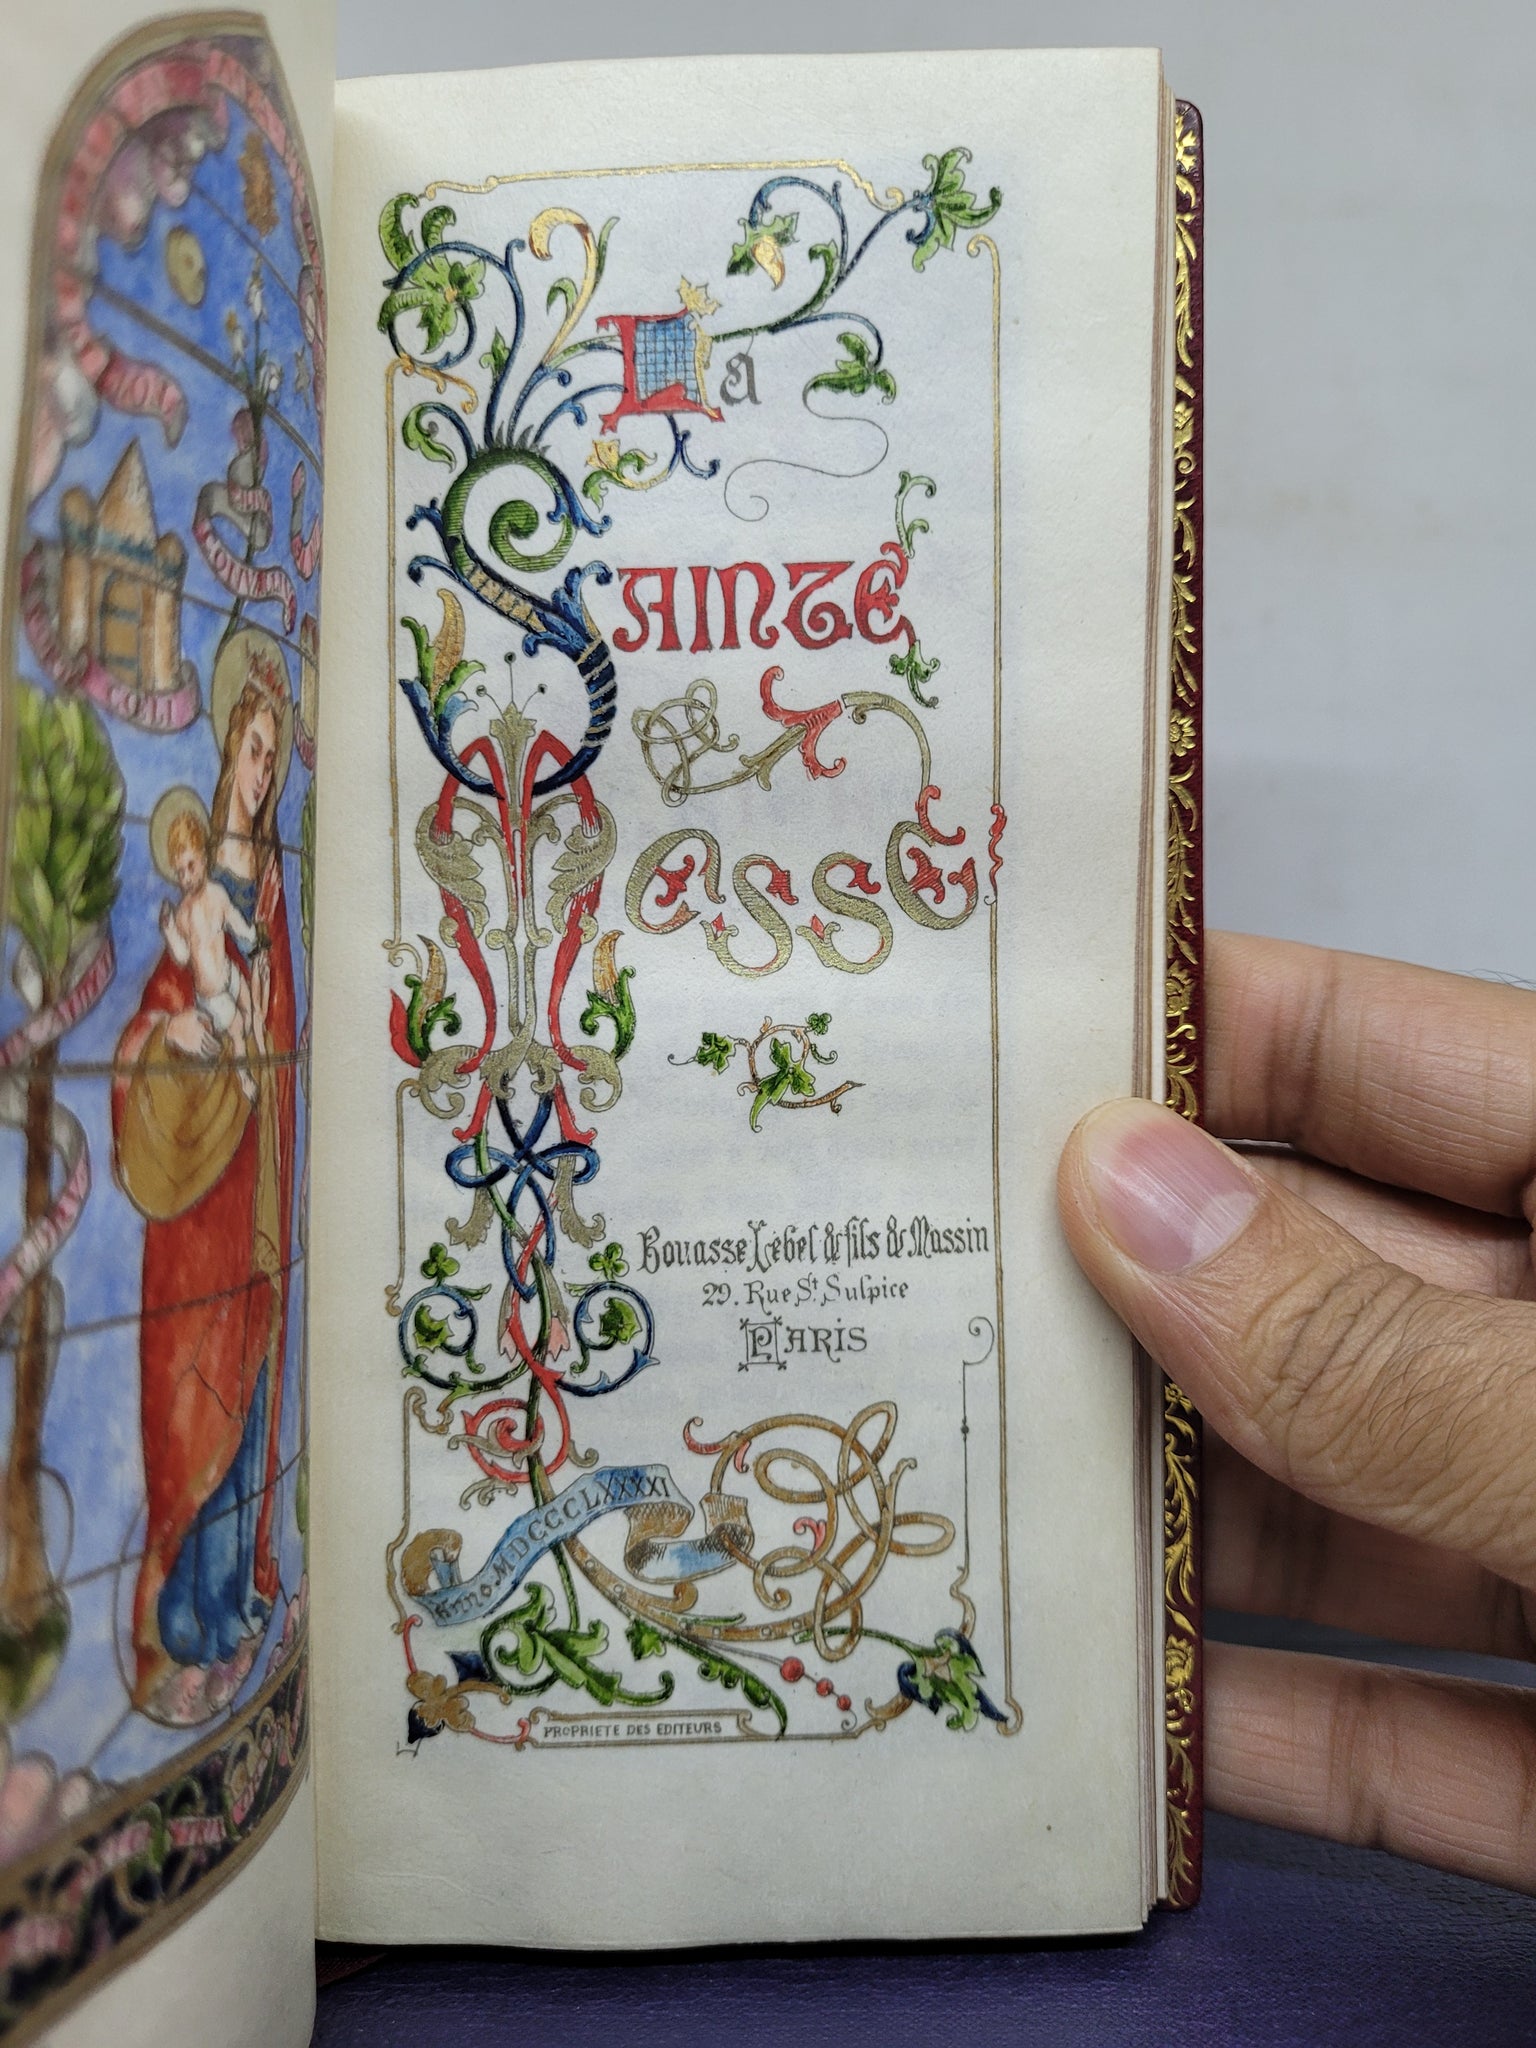 La
SAINTE
MESSE
Bouasse Lebel & fils & Massin
29. Rue St. Sulpice
PARIS
Anno. MDCCCLXXXXI
PROPRIETE DES EDITEURS